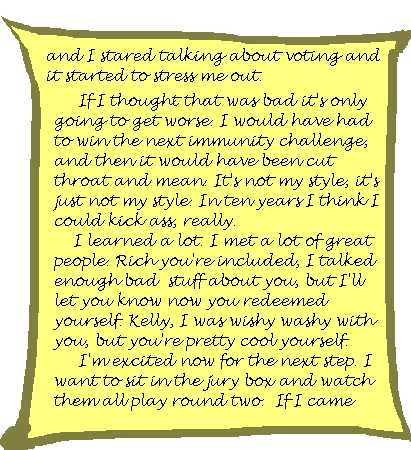 and I stared talking about voting and
it started to stress me out.
If I thought that was bad it's only
going to get worse. I would have had
to win the next immunity challenge,
and then it would have been cut
throat and mean. It's not my style, it's
just not my style. In ten years I think I
could kick ass, really.
I learned a lot. I met a lot of great
people. Rich you're included, I talked
enough bad stuff about you, but I'll
let you know now you redeemed
yourself. Kelly, I was wishy washy with
you, but you're pretty cool yourself.
I'm excited now for the next step. I
want to sit in the jury box and watch
them all play round two. If I came